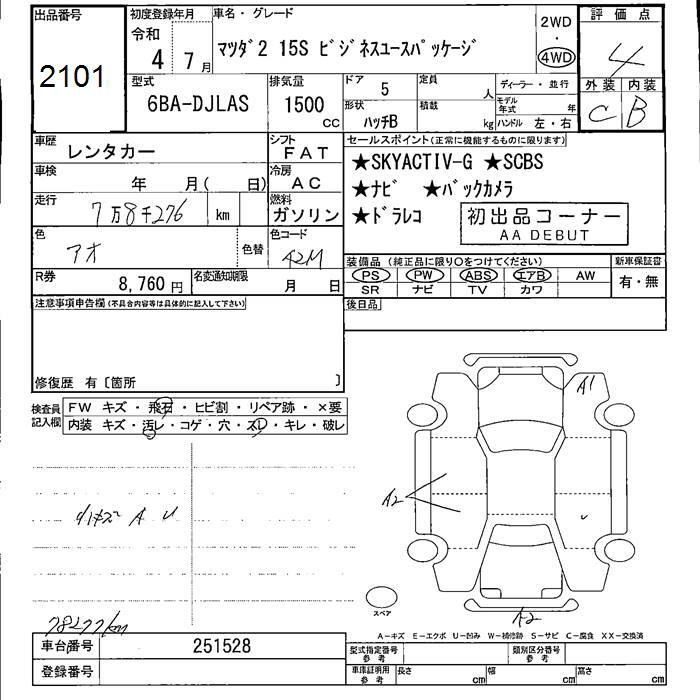 出品番号
2101
初度登録年月
令和
4年 7月
車名・グレード
マツダ2 15S ビジネスユースパッケージ
2WD
・
4WD
評価点
4
外装 内装
C B
型式
6BA-DJLAS
排気量
1500
cc
ドア
5
定員
人
形状
ハッチB
積載
kg
ディーラー・並行
モデル年式 年
ハンドル 左・右
車歴
レンタカー
シフト
FAT
車検
年 月( 日)
冷房
AC
走行
7万8千276 km
燃料
ガソリン
色
アオ
色替
色コード
42M
R券
8,760円
名変通知期限
月 日
セールスポイント(正常に機能するものに限ります)
★SKYACTIV-G ★SCBS
★ナビ ★バックカメラ
★ドラレコ
初出品コーナー
AA DEBUT
装備品 (純正品に限り○をつけてください)
PS PW ABS エアB AW
SR ナビ TV カワ
新車保証書
有・無
後日品
注意事項申告欄(不具合内容等は具体的に記入して下さい)
修復歴 有〔箇所 〕
検査員記入欄
FW キズ・飛石・ヒビ割・リペア跡・×要
内装 キズ・汚レ・コゲ・穴・スレ・キレ・破レ
小キズ A U
78277km
A1
A2
A2
スペア
A-キズ E-エクボ U-凹み W-補修跡 S-サビ C-腐食 XX-交換済
車台番号
251528
登録番号
型式指定番号
参考
類別区分番号
参考
車庫証明用
参考
長さ cm 幅 cm 高さ cm